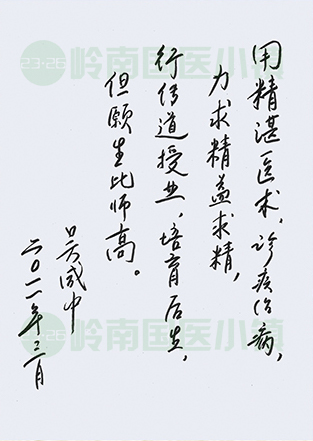 用精湛医术，诊疾治病，
力求精益求精，
行传道授业，培育后生，
但愿生比师高。
吴咸中
二〇一一年三月
23-26 岭南国医小镇
岭南国医小镇